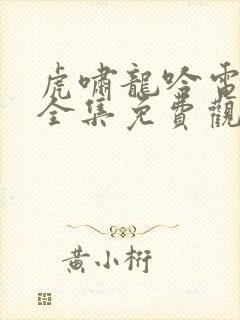 虎嘯龍哈電
全集免費觀
黃小桁